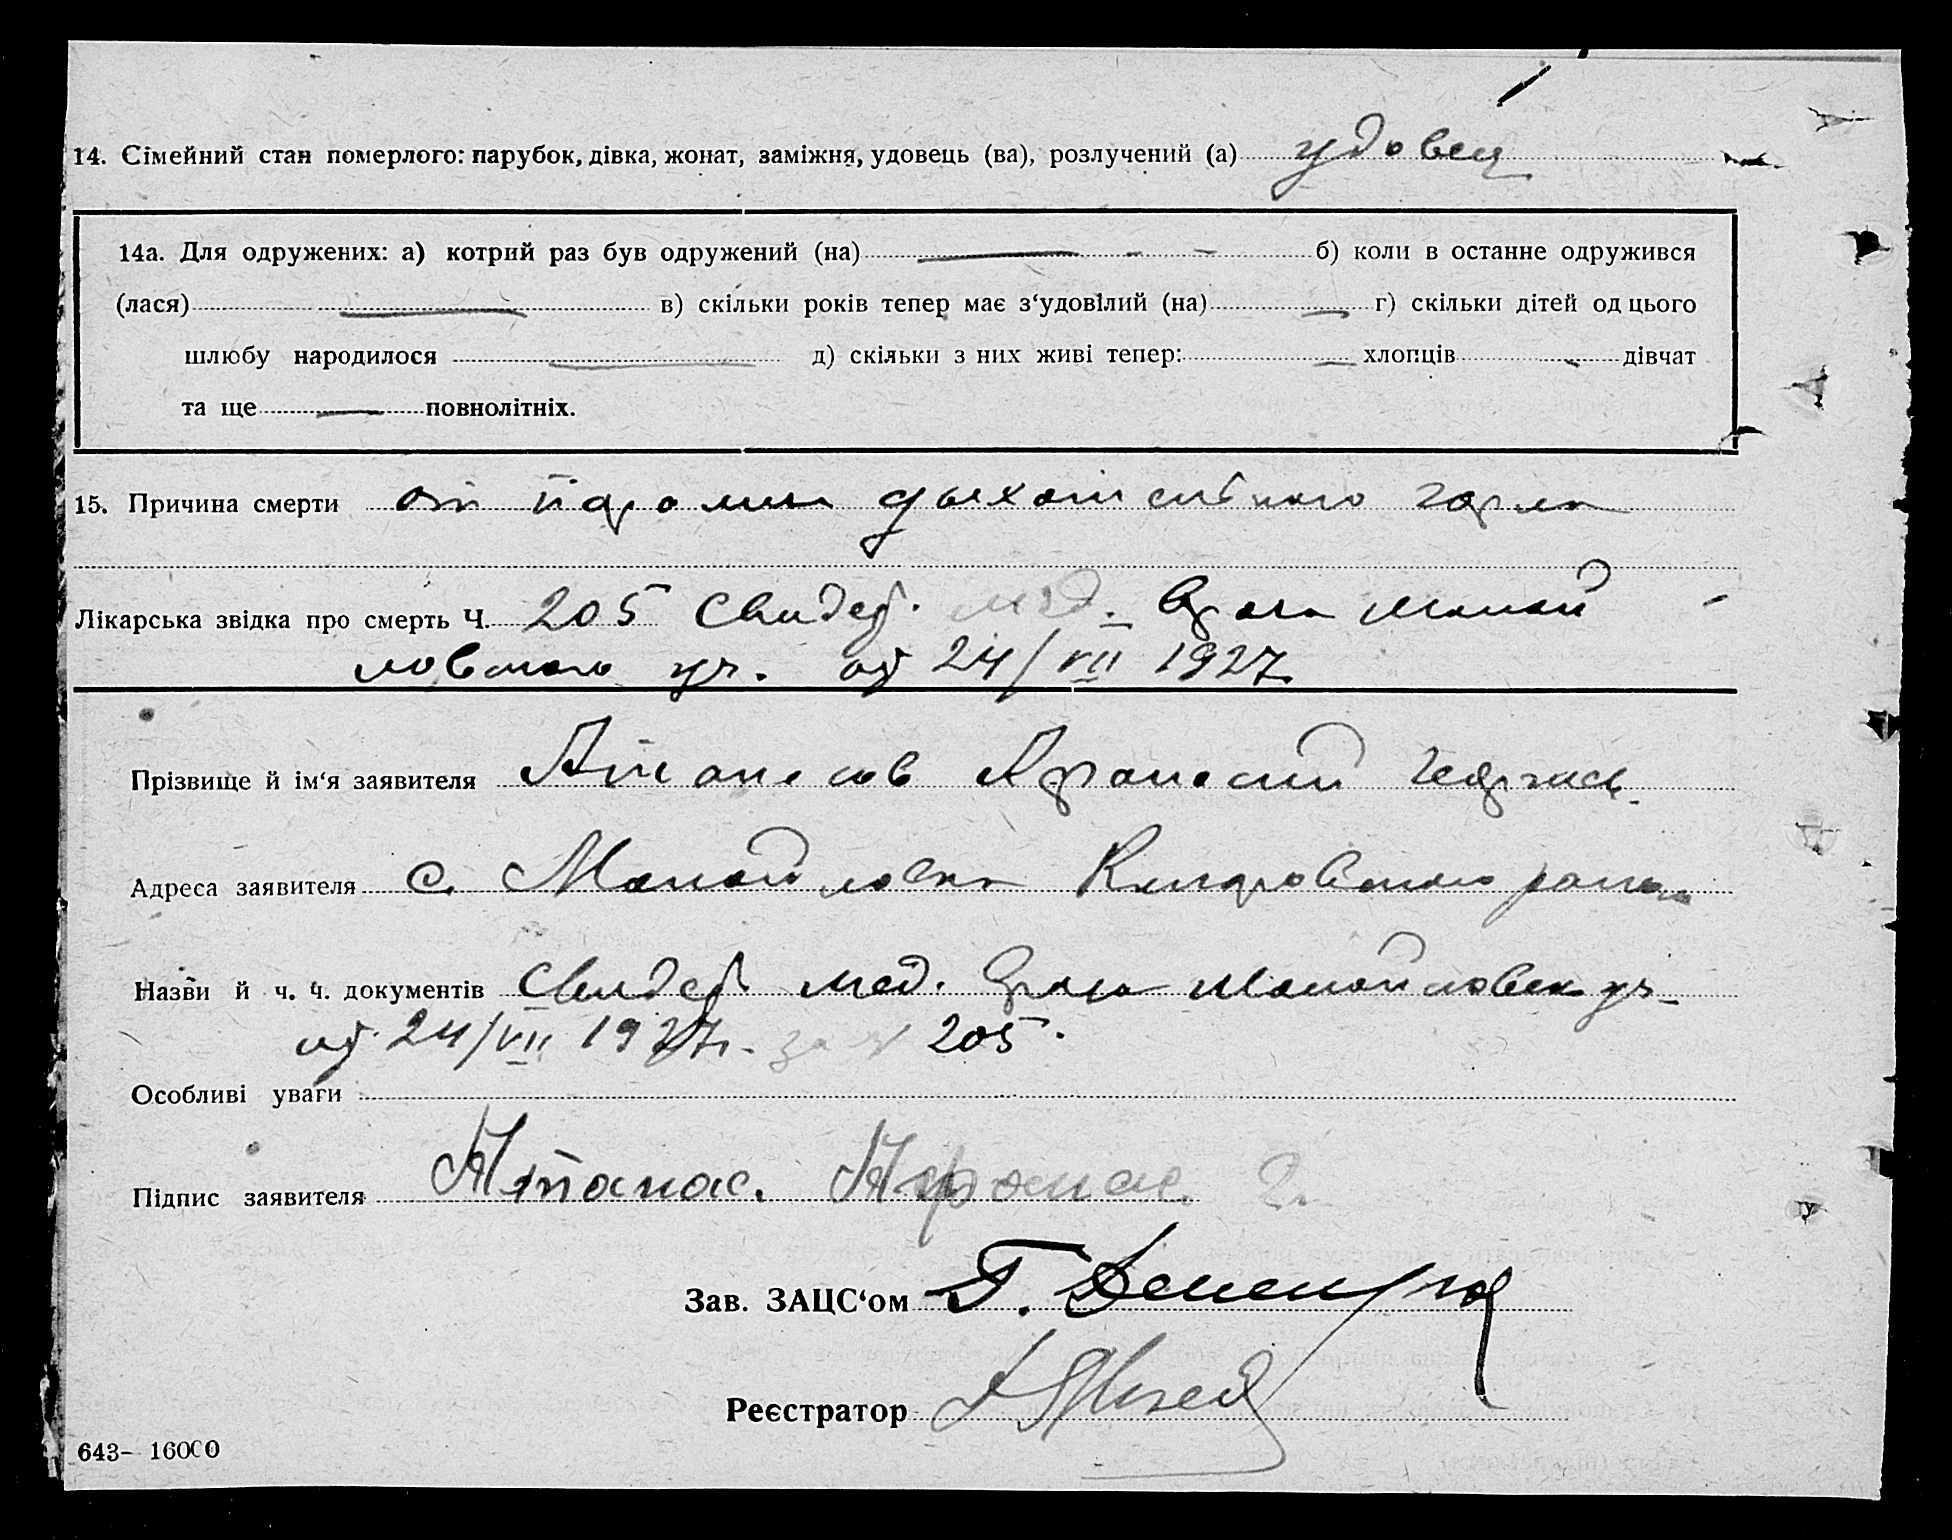 14. Сімейний стан померлого: парубок, дівка, жонат, заміжня, удовець (ва), розлучений (а) удовец
14а. Для одружених: а) котрий раз був одружений (на) — б) коли в останне одружився
(лася) — в) скільки років тепер має з‘удовілий (на) — г) скільки дітей од цього
шлюбу народилося — д) скільки з них живі тепер: — хлопців — дівчат
та ще — повнолітніх.
15. Причина смерти от дыхательного горла
Лікарська звідка про смерть Ч. 205 Свидет. мед. Врача Манай
ловского уч. от 24/VII 1927
Прізвище й ім‘я заявителя Атанасов Афанасий Георгиев.
Адреса заявителя с. Манайловка района
Назви й ч. ч. документів Свидет мед. Врача Манайловск уч
от 24/VII 1927 г. за № 205.
Особливі уваги
Підпис заявителя Атанас. Афанас. Г.
Зав. ЗАЦС‘ом Г.
Реєстратор
643— 16000